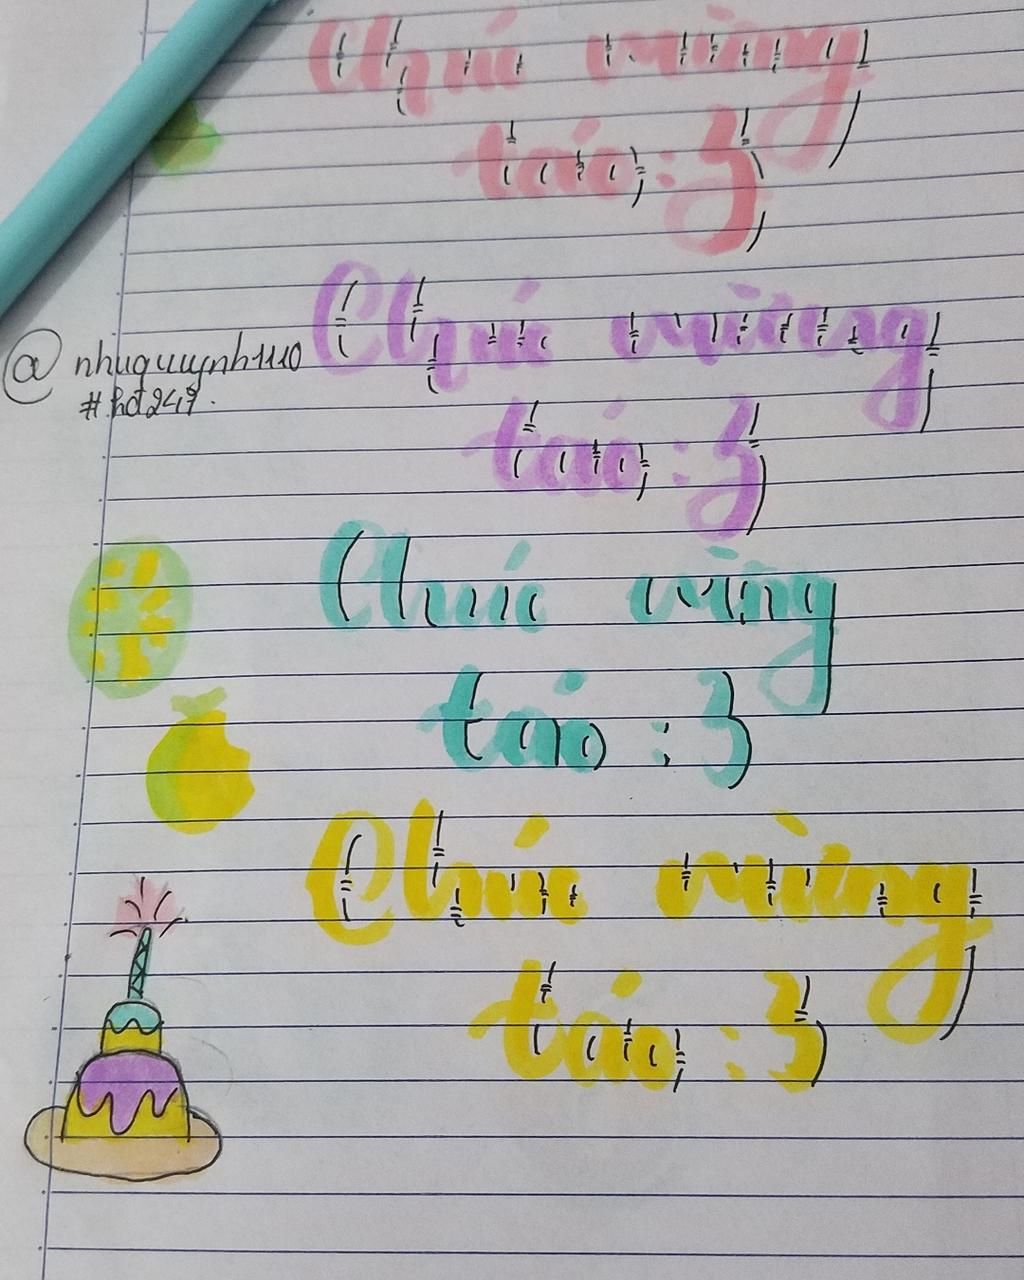 Chúc mừng
táo :3
Chúc mừng
@nhuquuynh1110
#hd247.
táo :3
Chúc mừng
táo :3
Chúc mừng
táo :3